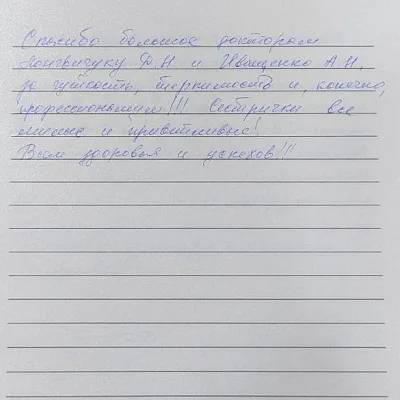 Спасибо большое докторам
Лонгвичуку Д.Н и Иващенко А.Н,
за чуткость, терпимость и, конечно,
профессионализм!!! Сестрички все
милые и приветливые!
Всем здоровья и успехов!!!